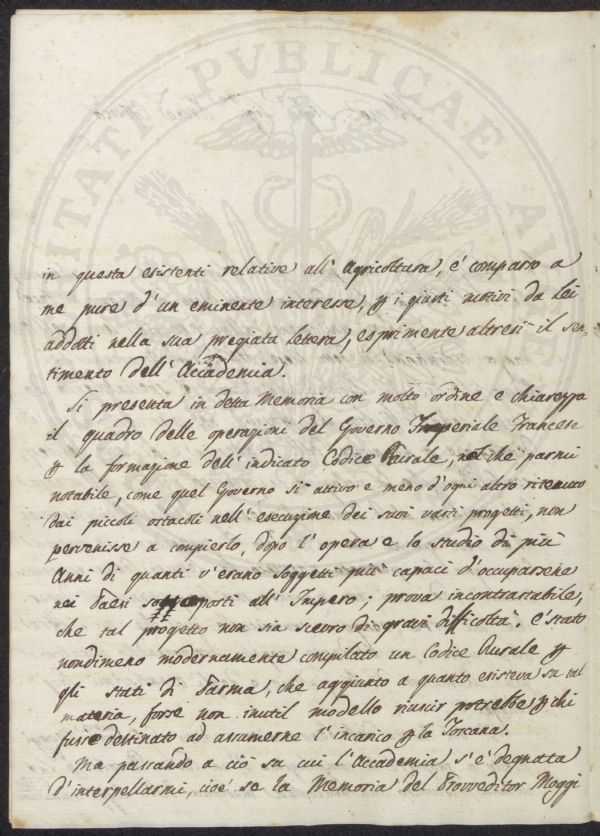 UTILITATI PUBLICAE
in questa esistenti relative all' Agricoltura, è comparso a
me pure d'un eminente interesse, p i giusti motivi da Lei
addotti nella sua pregiata lettera, esprimente altresì il sen-
timento dell' Accademia.
Si presenta in detta Memoria con molto ordine e chiarezza
il quadro delle operazioni del Governo Imperiale Francese
p la formazione dell' indicato Codice Rurale, nel che parmi
notabile, come quel Governo sì attivo e meno d'ogni altro ritenuto
dai piccoli ostacoli nell' esecuzione dei suoi vasti progetti, non
pervenisse a compierlo, dopo l' opera e lo studio di più
Anni di quanti v'erano soggetti più capaci d'occuparsene
nei Paesi sottoposti all' Impero; prova incontrastabile,
che tal progetto non sia scevro di gravi difficoltà. È stato
nondimeno modernamente compilato un Codice Rurale p
gli stati di Parma, che aggiunto a quanto esisteva su tal
materia, forse non inutil modello riuscir potrebbe p chi
fusse destinato ad assumerne l'incarico p la Toscana.
Ma passando a ciò su cui l'Accademia s'è degnata
d'interpellarmi, cioè se la Memoria del Provveditor Moggi